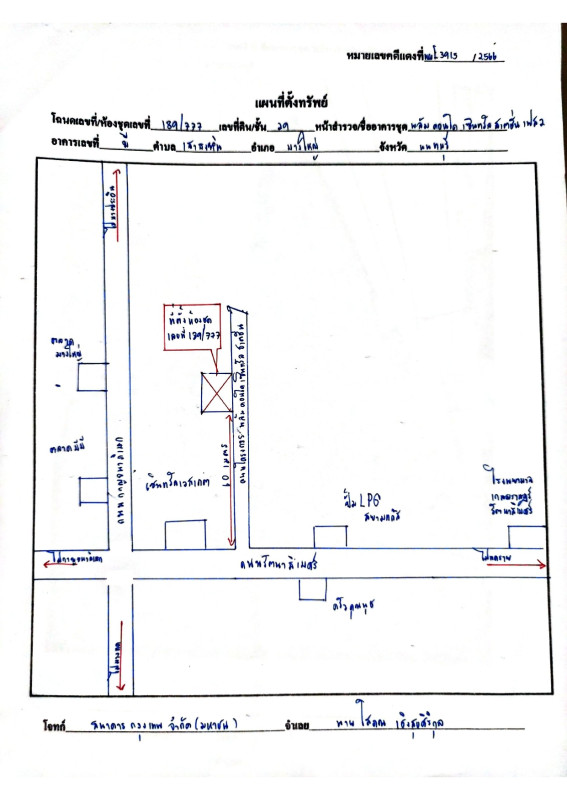 หมายเลขคดีแดงที่ 3913 /2566
แผนที่ตั้งทรัพย์
โฉนดเลขที่/ห้องชุดเลขที่ 139/777 เลขที่ดิน/ชั้น 29 หน้าสำรวจ/ชื่ออาคารชุด พลัม คอนโด เซ็นทรัล สเตชั่น เฟส 2
อาคารเลขที่ บี ตำบล เสาธงหิน อำเภอ บางใหญ่ จังหวัด นนทบุรี
ที่ตั้งห้องชุด
เลขที่ 139/777
ตลาด
บางใหญ่
ถนนกาญจนาภิเษก
ถนนโครงการ พลัม คอนโด เซ็นทรัล สเตชั่น
เซ็นทรัลเวสเกต
ปั๊ม LPG
สยามแก๊ส
โรงพยาบาล
เกษมราษฎร์
รัตนาธิเบศร์
ถนนรัตนาธิเบศร์
โจทก์ ธนาคาร กรุงเทพ จำกัด (มหาชน) จำเลย นาย